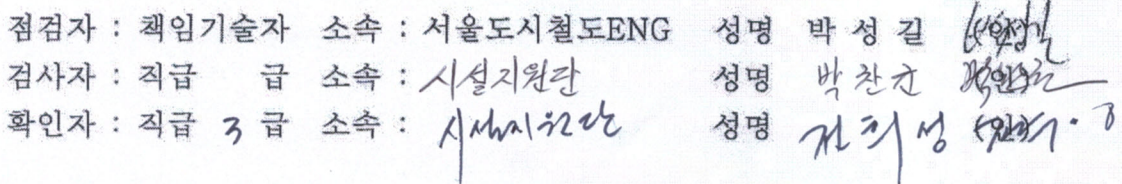 점검자 : 책임기술자 소속 : 서울도시철도ENG 성명 박 성 길 (인)
검사자 : 직급 급 소속 : 시설지원단 성명 박찬균 (인)
확인자 : 직급 3 급 소속 : 시설지원단 성명 전희성 (인)